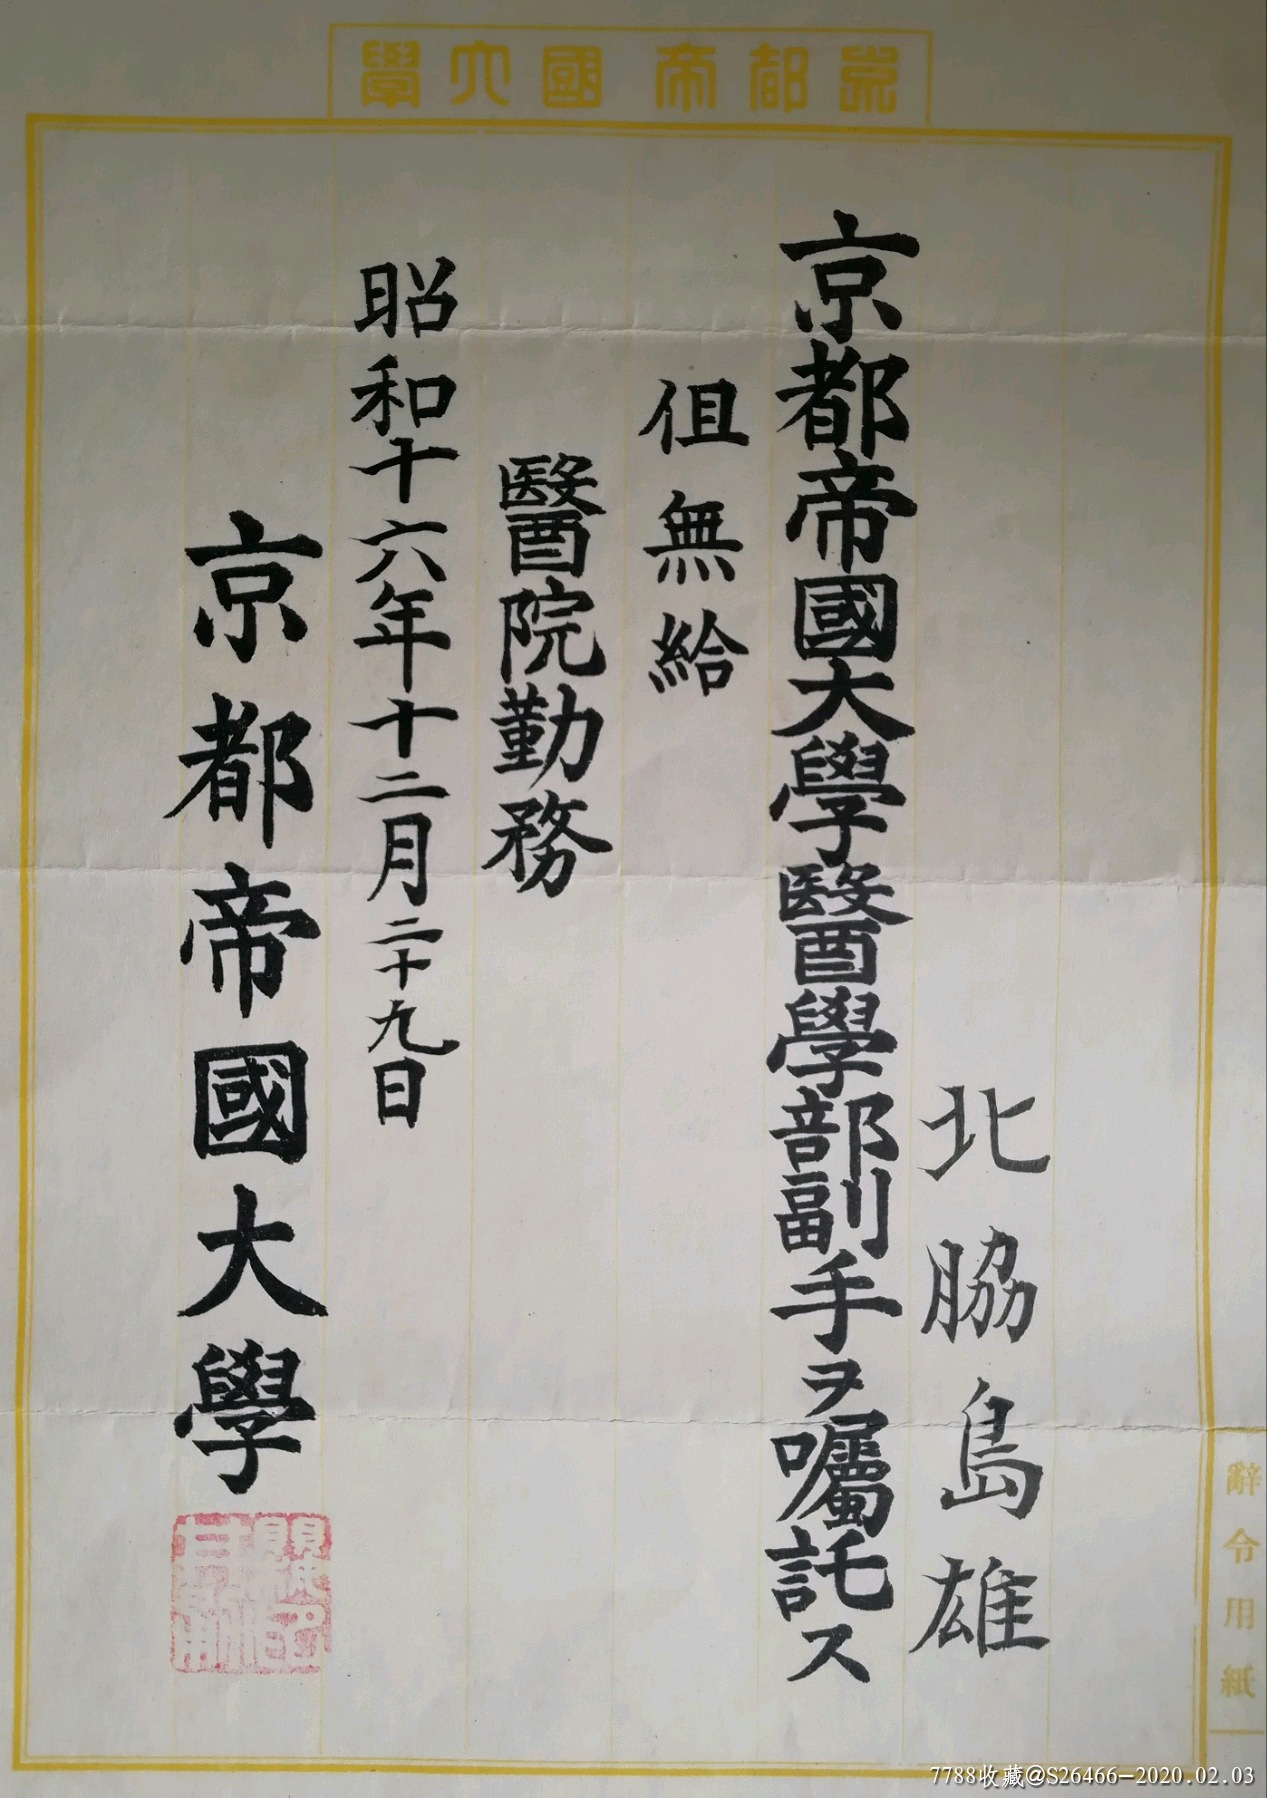 京都帝國大學
北脇島雄
京都帝國大學醫學部副手ヲ囑託ス
但無給
醫院勤務
昭和十六年十二月二十九日
京都帝國大學
辭令用紙
7788收藏@S26466-2020.02.03